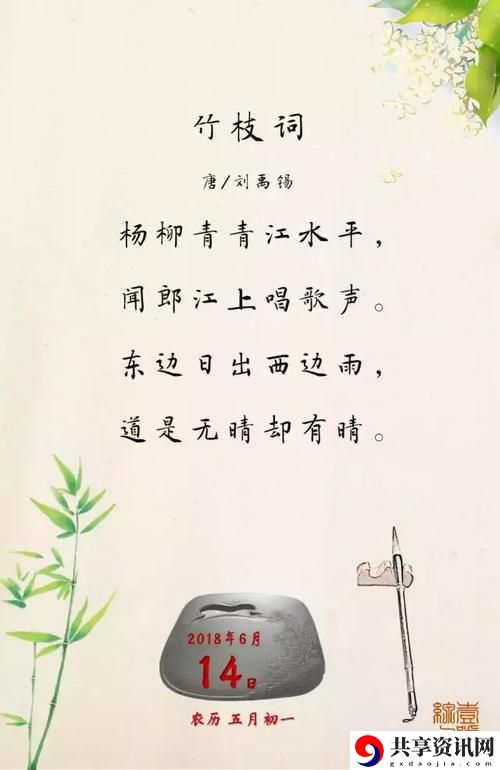 竹枝词
唐/刘禹锡
杨柳青青江水平，
闻郎江上唱歌声。
东边日出西边雨，
道是无晴却有晴。
2018年6月
14日
农历 五月初一
共享资讯网
gxdaojia.com